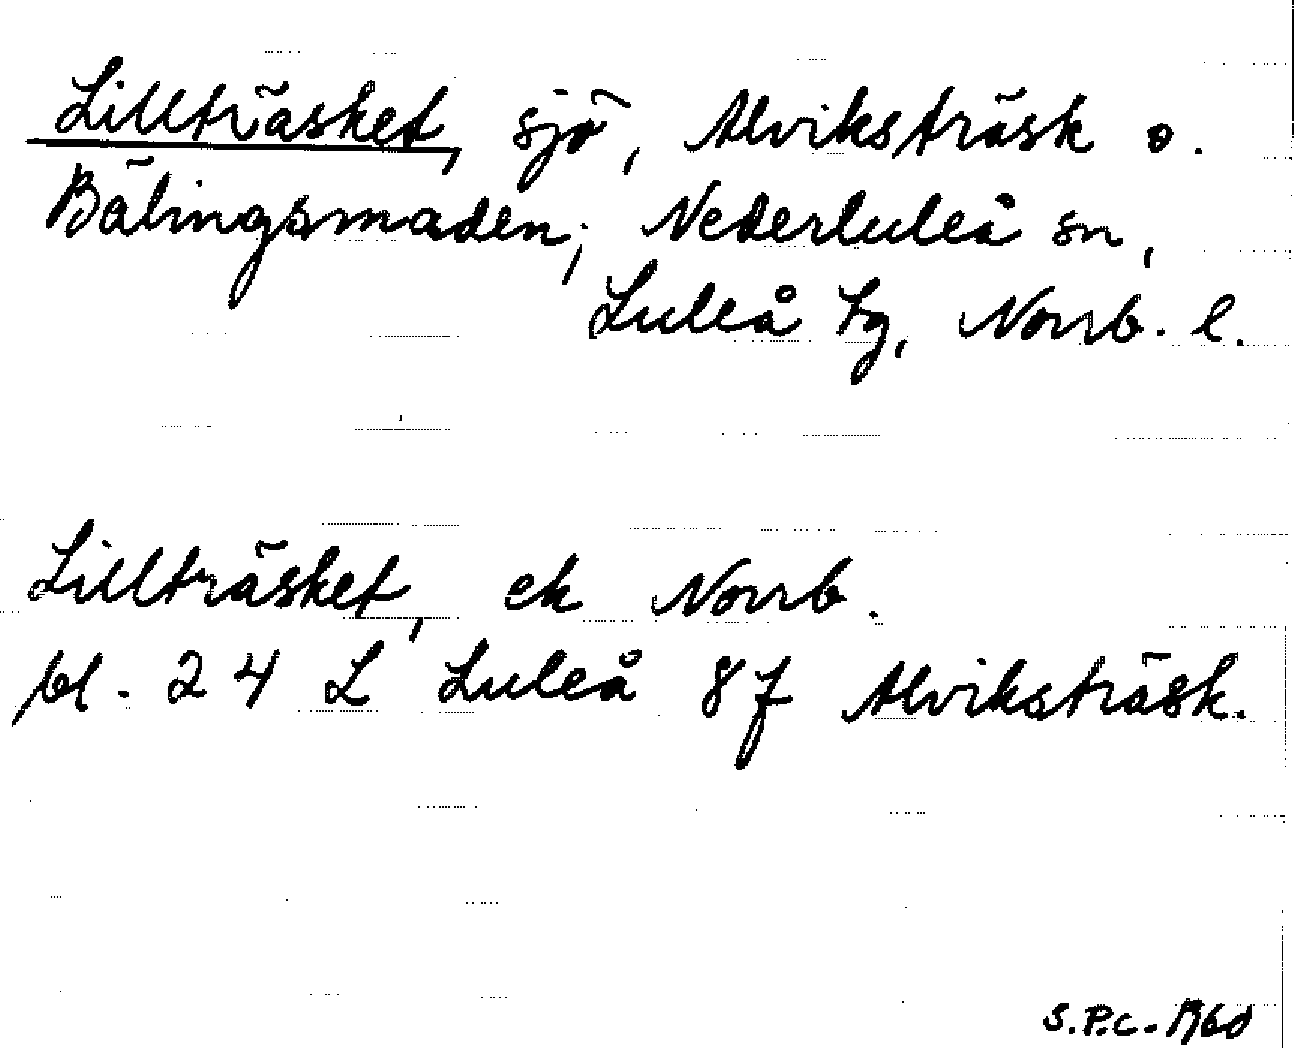 Lillträsket, sjö, Alviksträsk o.
Bälingsmaden; Nederluleå sn,
Luleå tg, Norrb. l.
Lillträsket, ek Norrb.
bl. 24 L Luleå 8f Alviksträsk.
S.P.C. 1960